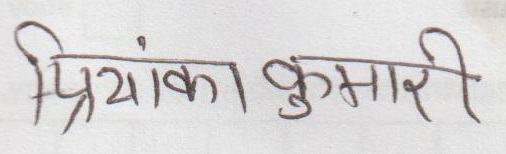 प्रियांका कुमारी